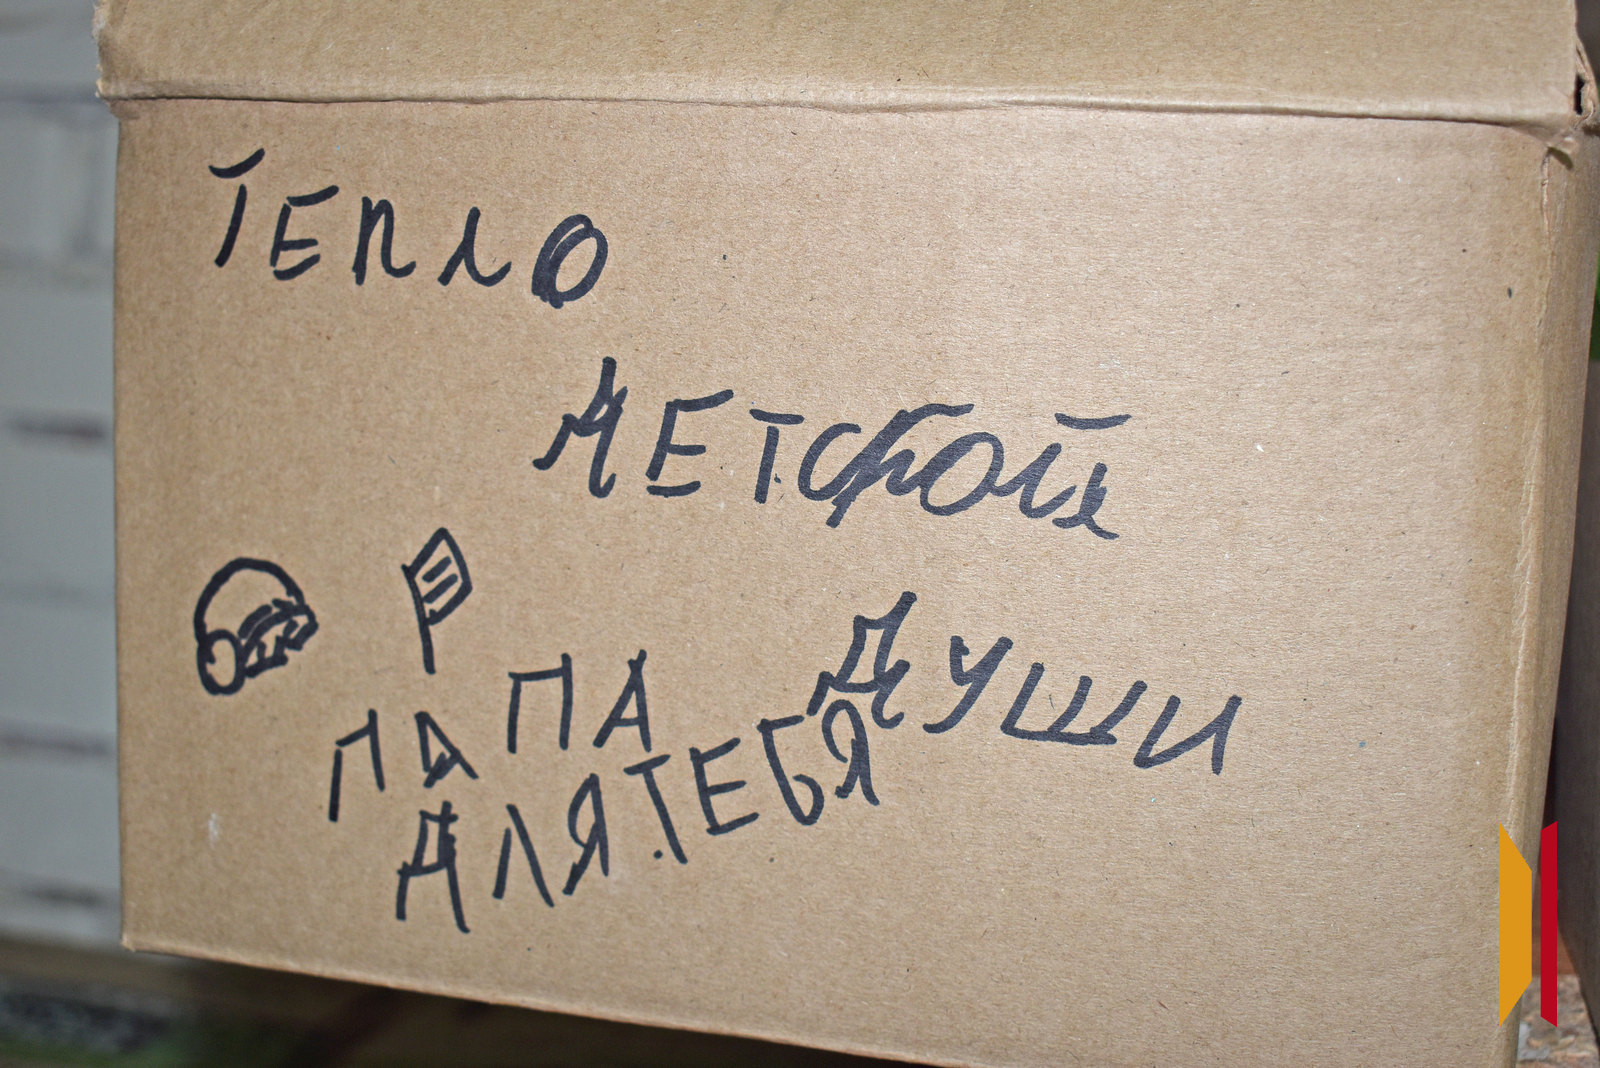 ТЕПЛО
ДЕТСКОЙ
ДУШИ
ПАПА
ДЛЯ ТЕБЯ